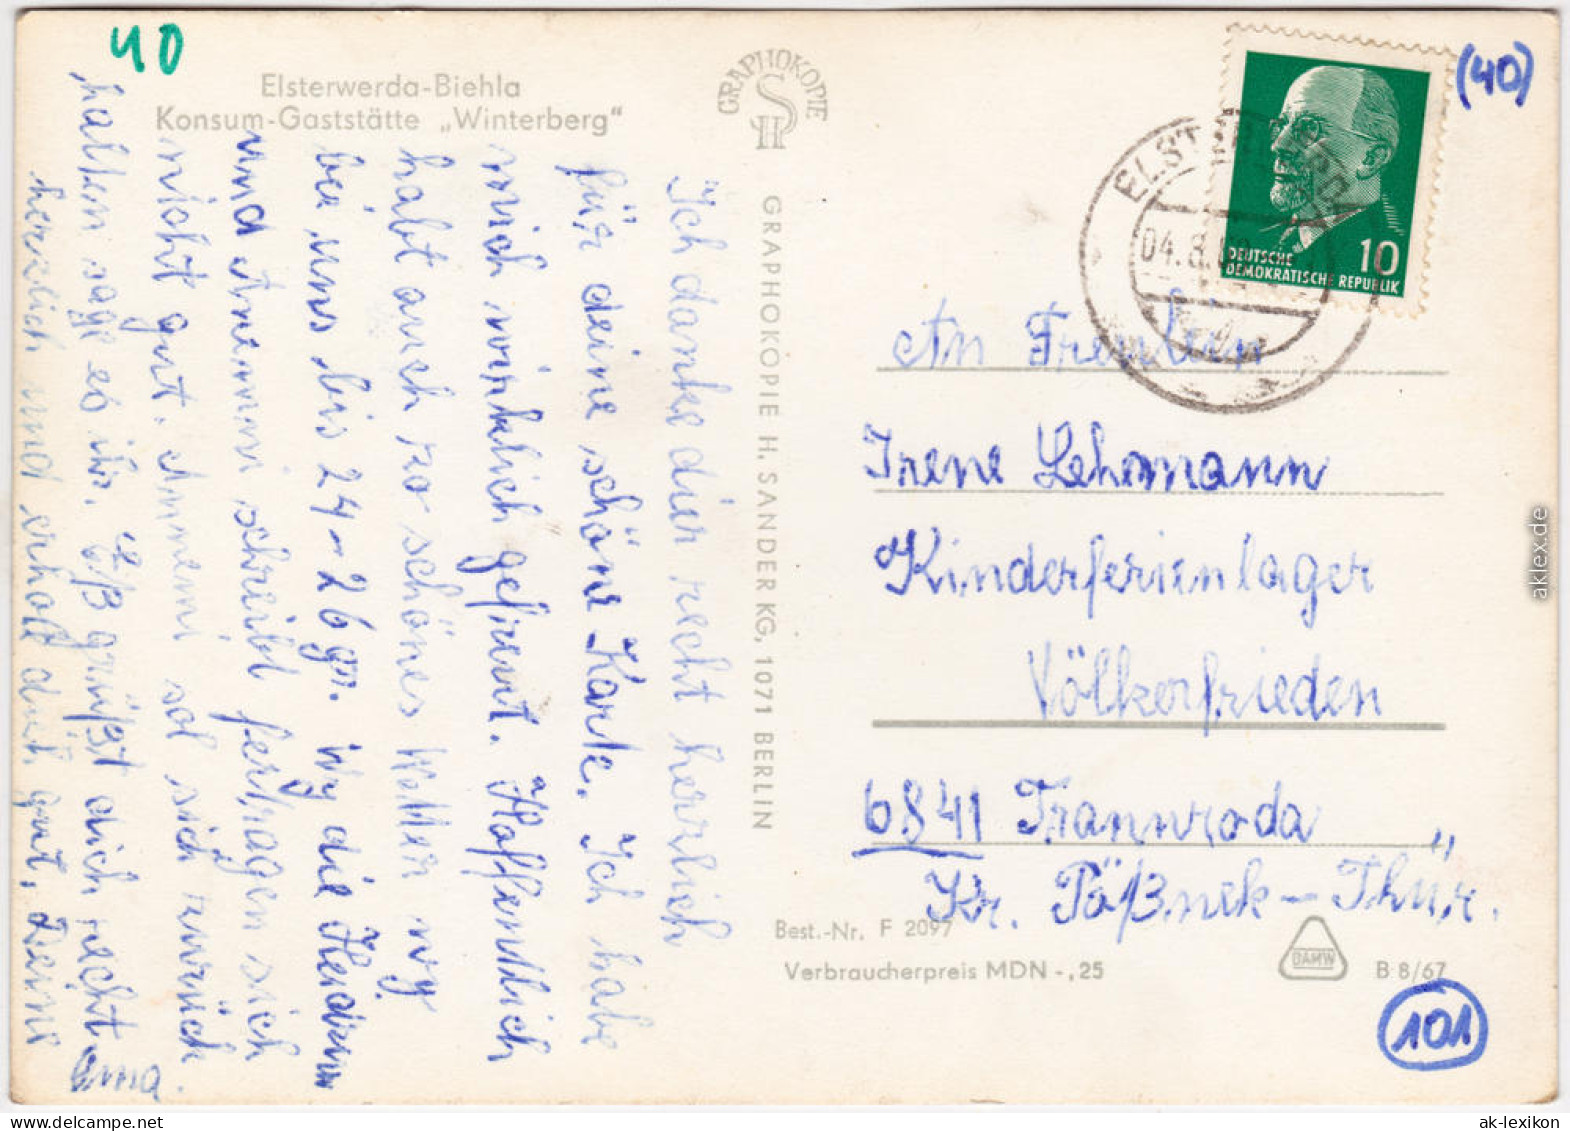 40
Elsterwerda-Biehla
Konsum-Gaststätte „Winterberg"
GRAPHOKOPIE
SH
(40)
ELSTERWERDA
04.8.6
10
DEUTSCHE
DEMOKRATISCHE REPUBLIK
Ich danke dir recht herzlich
für deine schöne Karte. Ich habe
mich wirklich gefreut. Hoffentlich
habt auch so schönes Wetter wy
bei uns bis 24–26 gr. Wy die
und Annemi schreibt fertragen sich
nicht gut. Annemi sol sich zurück
halten sage es ihr. Es grüßt dich recht
herzlich und erhold dich gut. Deine
Oma
GRAPHOKOPIE H. SANDER KG, 1071 BERLIN
An Freulein
Irene Lehmann
Kinderferienlager
Völkerfrieden
6841 Trannroda
Kr. Pößneck – Thür.
Best.-Nr. F 2097
Verbraucherpreis MDN -,25
DAMW
B 8/67
101
aklex.de
ak-lexikon